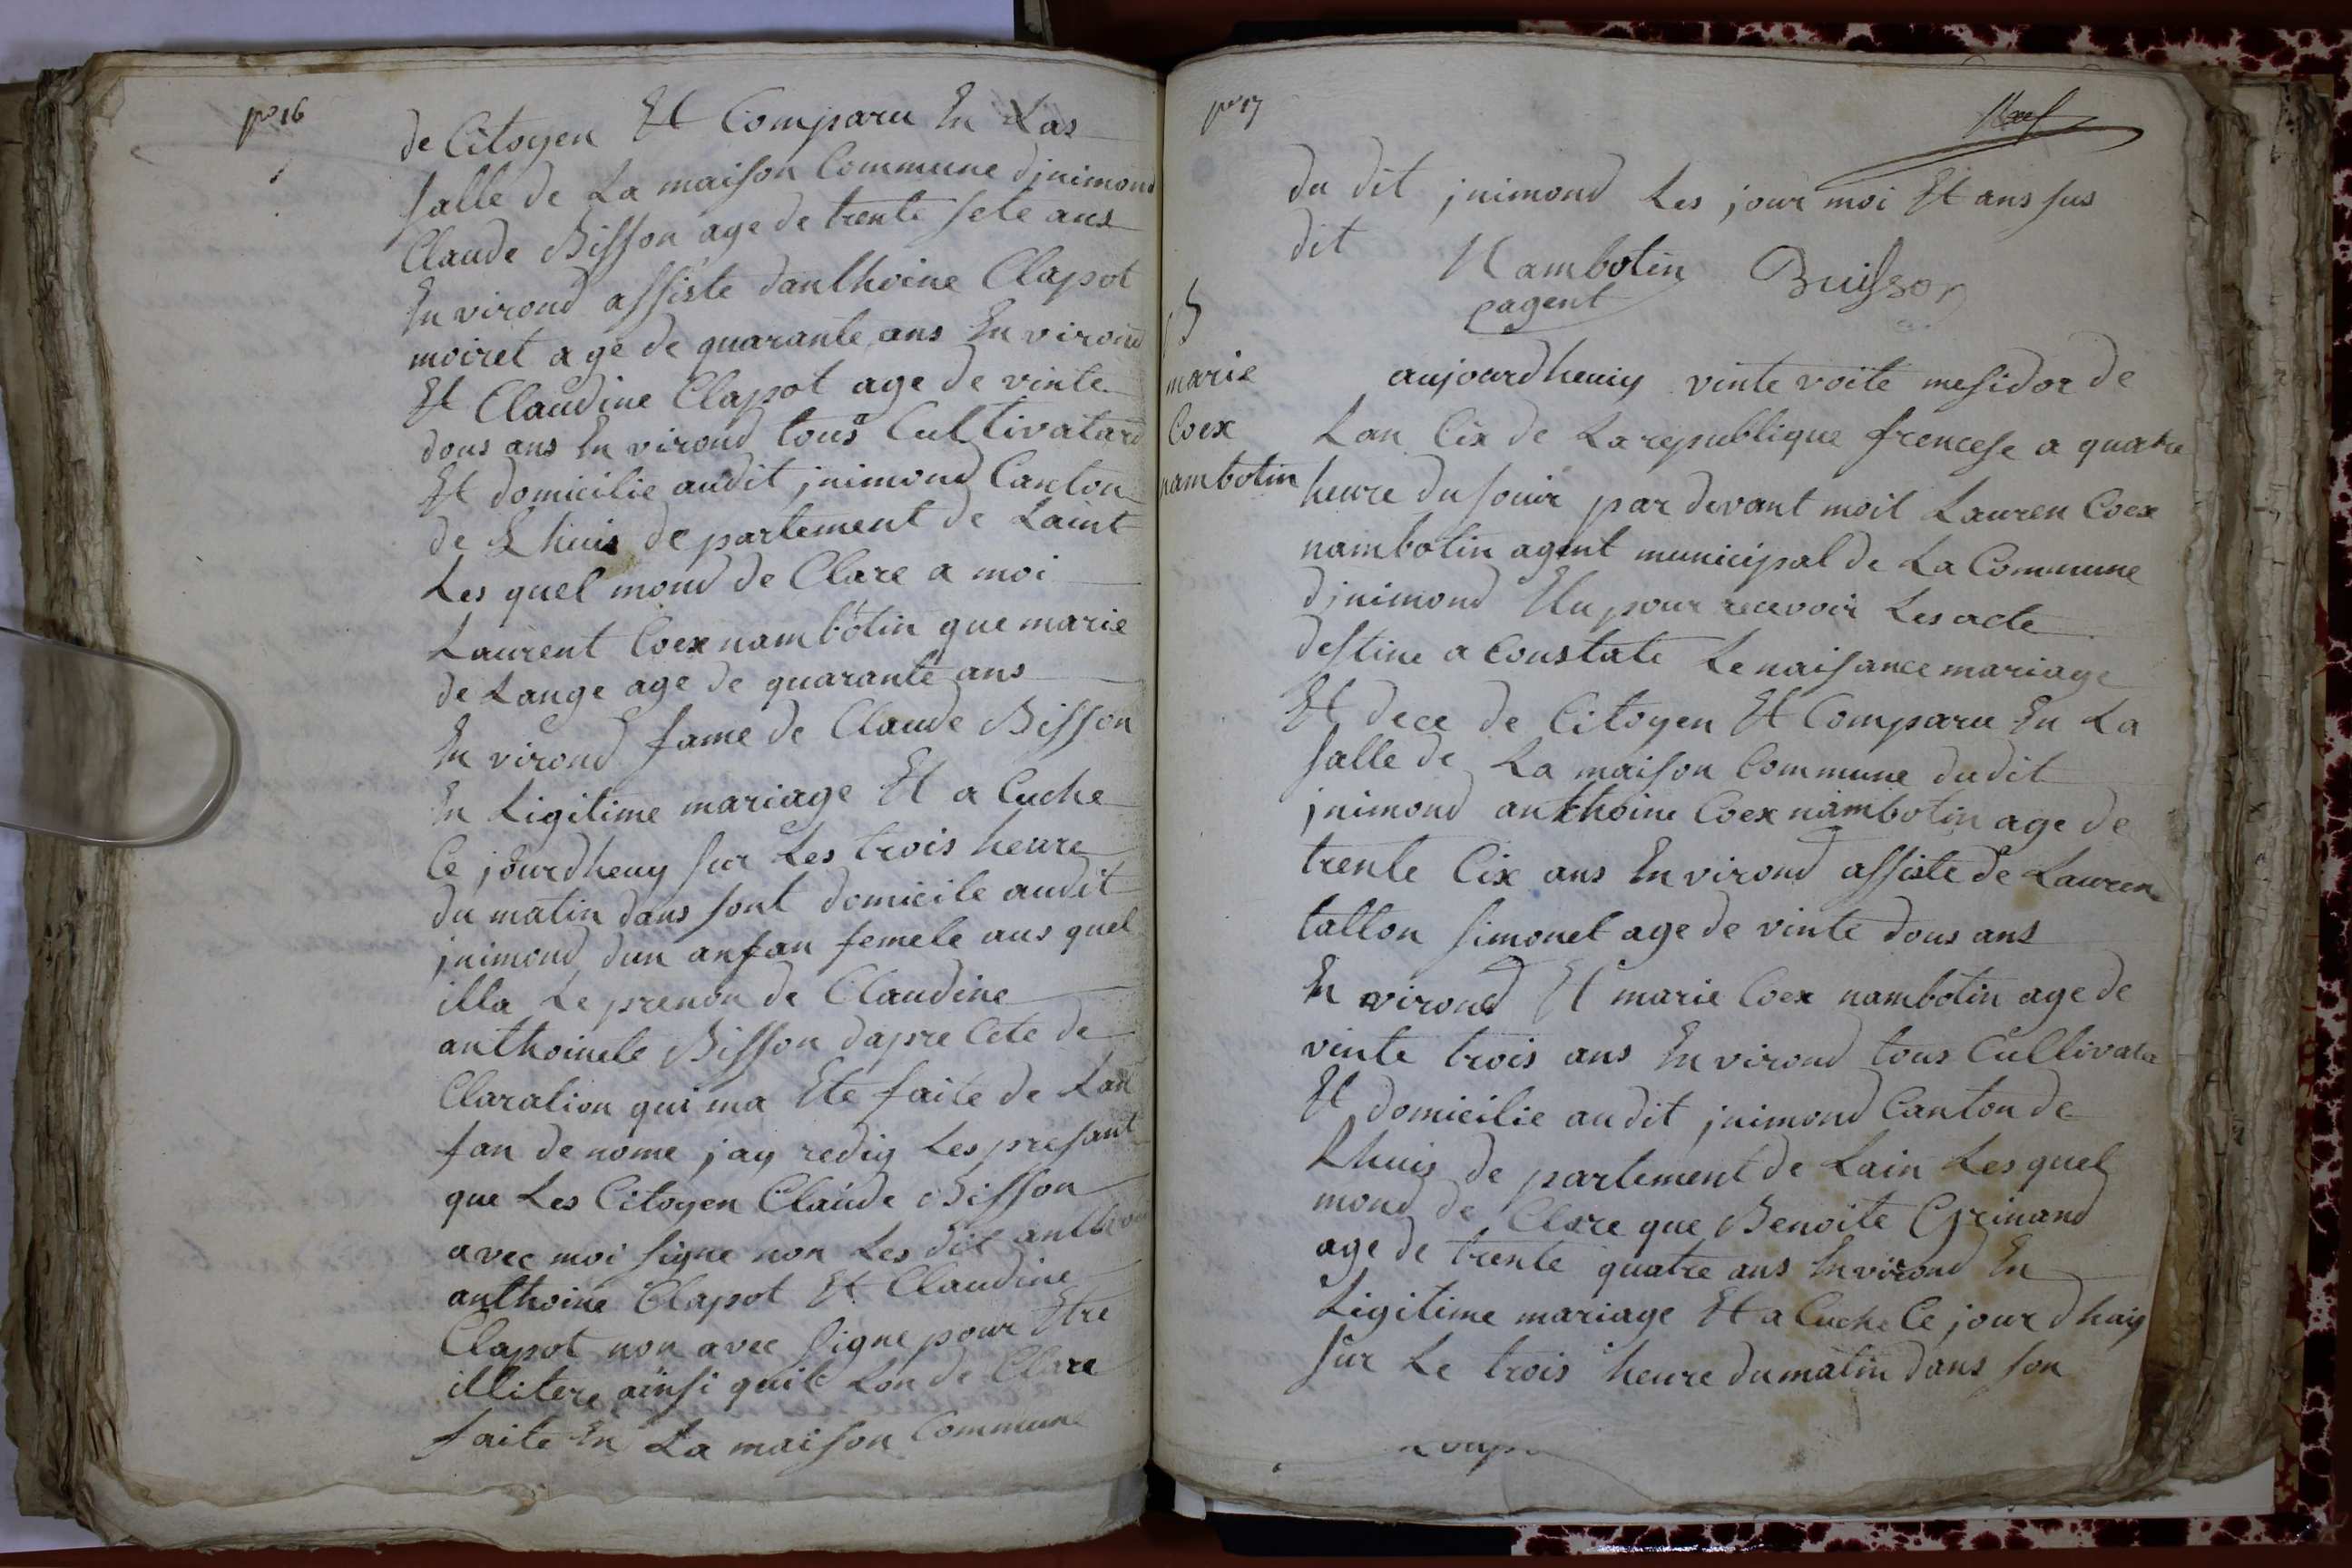 po 16
de Citoyen Et Comparu En Las
salle de La maison Commune djnimond
Claude Bisson age de trente sete ans
En virond assiste danthoine Clapot
moiret age de quarante ans En virond
Et Claudine Clapot age de vinte
dous ans En virond tous Cultivatard
Et domicilie audit jnimond Canton
de Lhuis de partement de Laint
Les quel mond de Clare a moi
Laurent Coex nambotin que marie
de Lange age de quarante ans
En virond fame de Claude Bisson
En Ligitime mariage Et a Cuche
Ce jourdheuy sur Les trois heure
du matin dans sont domicile audit
jnimond dun anfan femele aus quel
illa Le prenon de Claudine
anthoinele Bisson dapre Cete de
Claration qui ma Ete faite de Lan
fan de nome jay redig Les presant
que Les Citoyen Claude Bisson
avec moi signe non Les dit
anthoine Clapot Et Claudine
Clapot non avec signe pour Etre
illitere ainsi quil Lon de Clare
faite En La maison Commune
po 17
du dit jnimond Les jour moi Et ans sus
dit
Nambotin Buisson
agent
marie
Coex
nambotin
aujourdheuiy vinte voite mesidor de
Lan Cix de La republique francese a quatre
heure du souir par devant moit Lauren Coex
nambotin agent municipal de La Commune
djnimond Elu pour recevoir Les acte
destine a Constate Le naisance mariage
Et dece de Citoyen Et Comparu En La
salle de La maison Commune dudit
jnimond anthoine Coex nambotin age de
trente Cix ans En virond assiste de Lauren
tallon simonet age de vinte dous ans
En virond Et marie Coex nambotin age de
vinte trois ans En virond tous Cultivata
Et domicilie audit jnimond Canton de
Lhuis de partement de Lain Les quel
mond de Clare que Benoite Grinand
age de trente quatre ans En virond En
Ligitime mariage Et a Cuche Ce jour dhuiy
sur Le trois heure du matin dans son